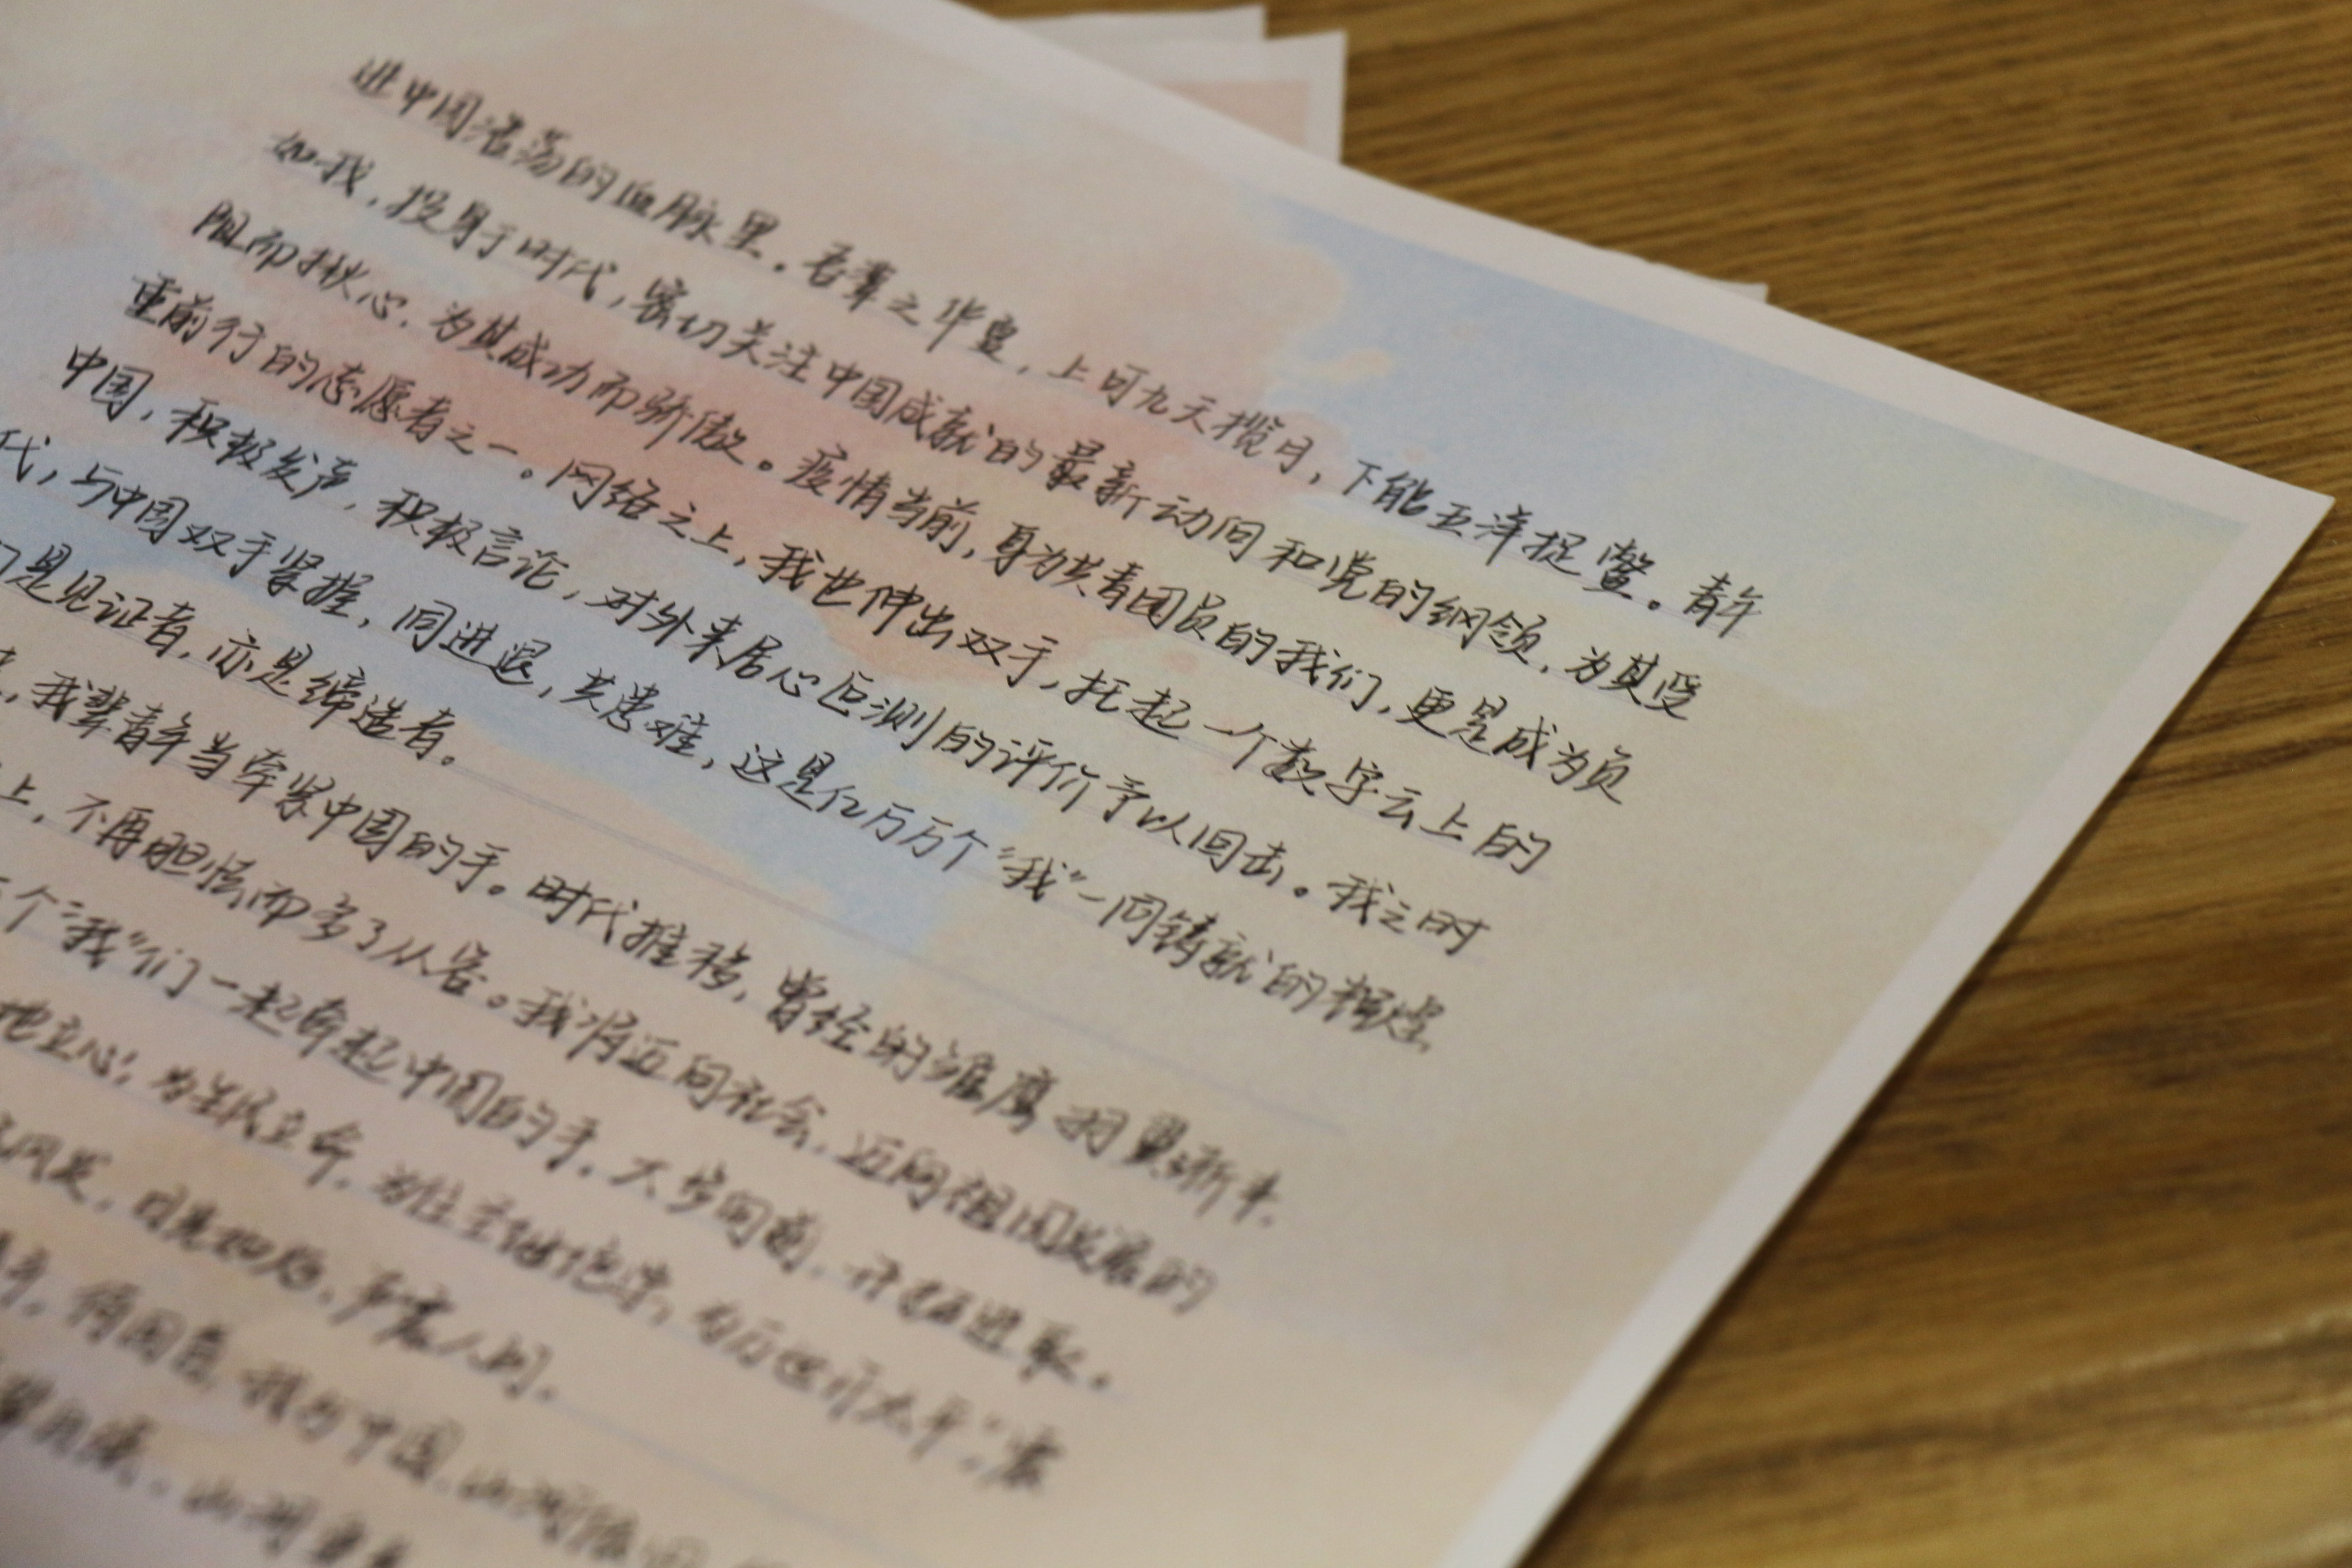 进中国浩荡的血脉里。吾辈之华夏,上可九天揽月,下能五洋捉鳖。青年
如我,投身于时代,密切关注中国成就的最新动向和党的纲领,为其受
阻而揪心,为其成功而骄傲。疫情当前,身为共青团员的我们,更是成为负
重前行的志愿者之一。网络之上,我也伸出双手,托起一个数字云上的
中国,积极发声,积极言论,对外来居心叵测的评价予以回击。我之时
代,与中国双手紧握,同进退,共患难,这是亿万万个“我”一同铸就的辉煌
们是见证者,亦是缔造者。
,我辈青年当牵紧中国的手。时代推移,曾经的雏鹰羽翼渐丰,
上,不再胆怯而多了从容。我将迈向社会,迈向祖国发展的
个“我”们一起牵起中国的手,大步向前,开拓进取。
地立心,为生民立命,为往圣继绝学,为万世开太平”
风发,目光如炬,声震人间。
我为中国